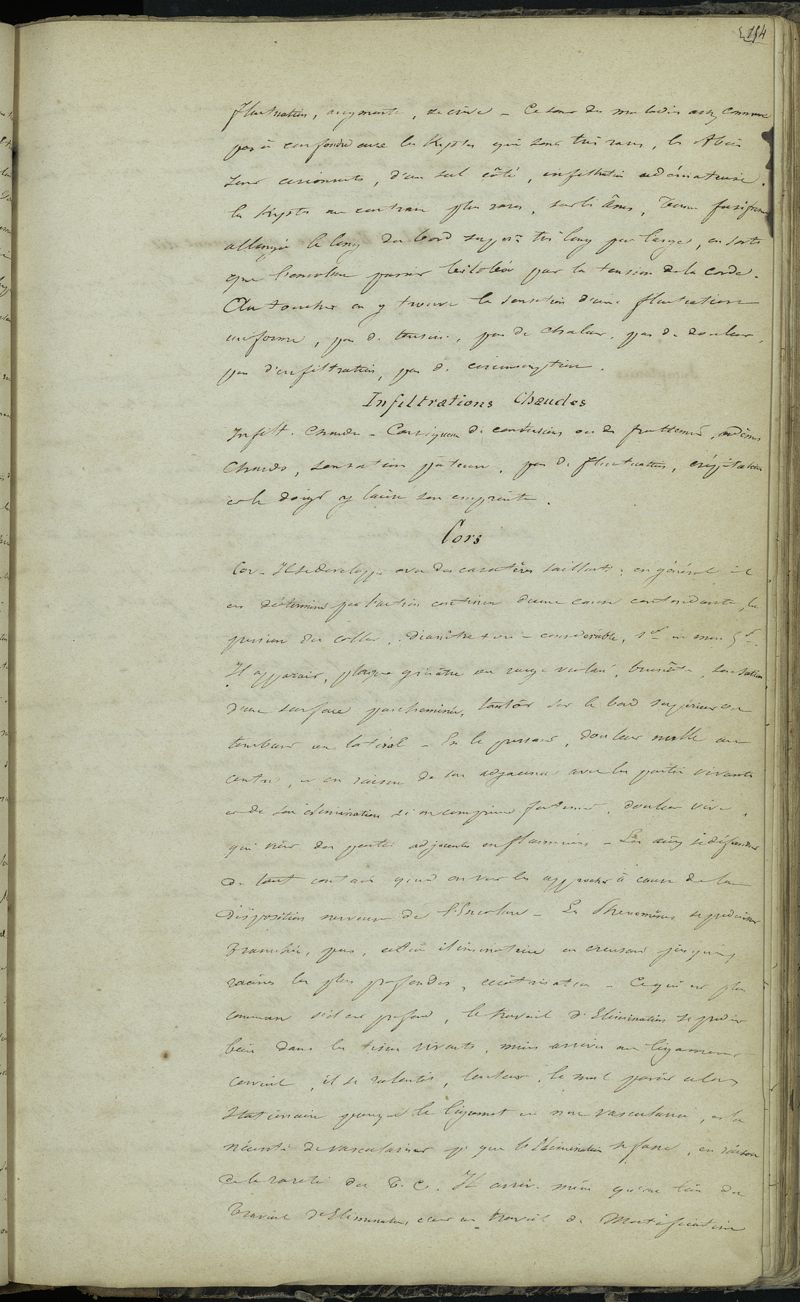 154
fluctuation, augmente, . Ce sont des maladies assez communes
pas à confondre avec les Kystes qui sont très rares, les Abcès
sont , d'un seul côté, infiltration œdémateuse.
les Kystes au contraire plus rares, sur les ânes, forme fusiforme
allongée le long du bord supér. très long peu large, en sorte
que l'encolure paraît bilobée par la tension de la corde.
Au toucher on y trouve la sensation d'une fluctuation
uniforme, pas de tension, pas de chaleur, pas de douleur,
pas d'infiltration, pas de circonscription.
Infiltrations Chaudes
Infilt. Chaude - de contusions ou de frottements, œdèmes
Chauds, sensation pâteuse, pas de fluctuation, crépitation
et le doigt y laisse son empreinte.
Cors
Cor - Il se développe avec des caractères saillants; en général il
est déterminé par l'action continue d'une cause contondante, la
pression du collier, diamètre considérable, 
Il apparaît, plaque grisâtre ou rouge violacé, , sensation
d'une surface parcheminée, tantôt sur le bord supérieur ou
 latéral - En le pressant, douleur nulle au
centre, et en raison de son adjacence avec les parties vivantes
et de son élimination si on comprime fortement, douleur vive,
qui vient des parties adjacentes enflammées - Les se défendent
de tout contact quand on veut les approcher à cause de la
disposition nerveuse de l'Encolure - Les Phénomènes se produisent
, pus, éliminatoire en creusant jusqu'aux
racines les plus profondes, cicatrisation - Ce qui est plus
commun s'il est profond, le travail d'Elimination se produit
bien dans les tissus vivants, mais arrivé au ligament
cervical, il se ralentit, , le mal paraît alors
Stationnaire parce que le ligament est non vasculaire, et la
nécessité de vasculariser pr que l'Elimination se fasse, en raison
de la rareté du T. C. Il arrive même qu'au lieu du
travail d'Elimination c'est un travail de Mortification